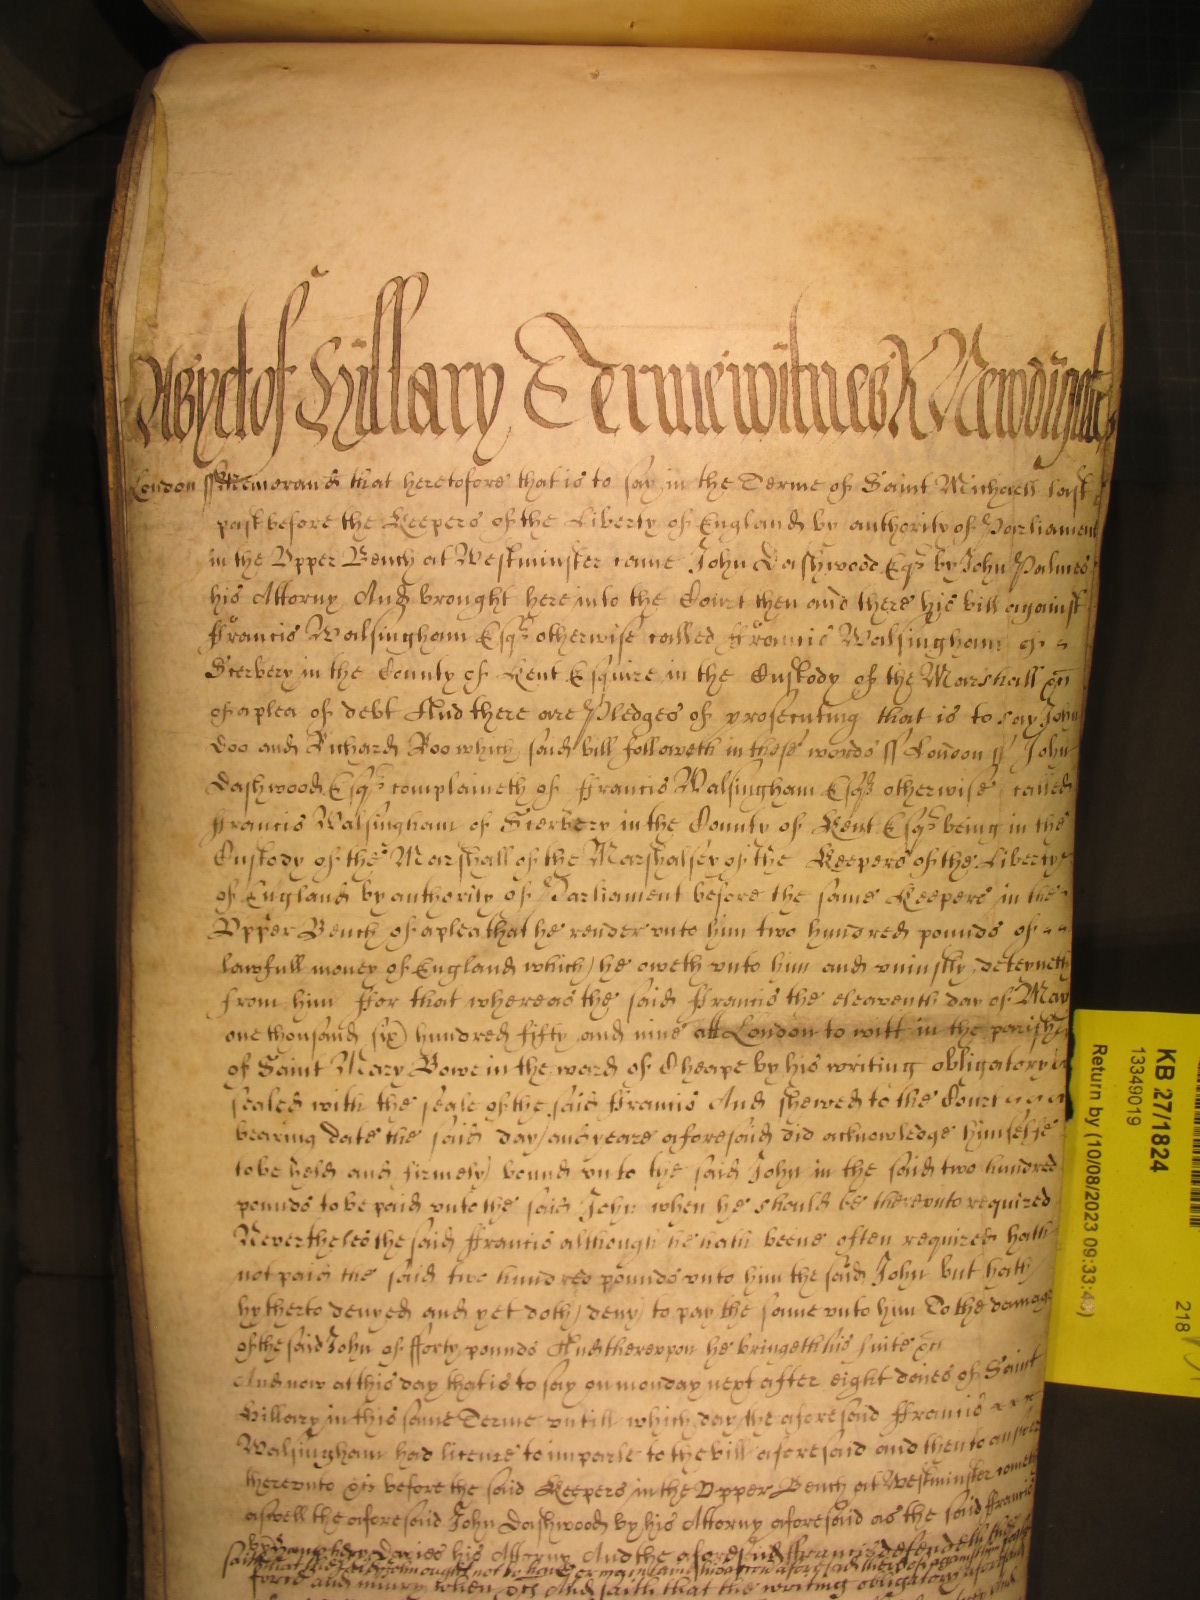 As yet of Hillary Terme witnes R Newdigate
London ss Memorand that heretofore that is to say in the Terme of Saint Michaell last
past before the Keepers of the Liberty of England by authority of Parliament
in the Upper Bench at Westminster came John Dashwood Esqr by John Palmes
his Attorny And brought here into the Court then and there his bill against
ffrancis Walsingham Esqr otherwise called ffrancis Walsingham of
Sterbery in the County of Kent Esquire in the Custody of the Marshall &c
of a plea of debt And there are Pledges of prosecuting that is to say John
Doo and Richard Roo which said bill followeth in these words ss London ss John
Dashwood Esqr complaineth of ffrancis Walsingham Esqr otherwise called
ffrancis Walsingham of Sterbery in the County of Kent Esqr being in the
Custody of the Marshall of the Marshalsey of the Keepers of the Liberty
of England by authority of Parliament before the same Keepers in the
Upper Bench of a plea that he render unto him two hundred pounds of
lawfull money of England which he oweth unto him and uniustly deteyneth
from him ffor that whereas the said ffrancis the eleaventh day of May
one thousand six hundred fifty and nine att London to witt in the parish
of Saint Mary Bowe in the ward of Cheape by his writing obligatory
sealed with the seale of the said ffrancis And shewed to the Court
bearing date the said day and yeare aforesaid did acknowledge himselfe
to be held and firmely bound unto the said John in the said two hundred
pounds to be paid unto the said John when he should be thereunto required
Nevertheles the said ffrancis although he hath beene often required hath
not paid the said two hundred pounds unto him the said John but hath
hytherto denyed and yet doth deny to pay the same unto him To the damage
of the said John of fforty pounds And thereupon he bringeth his suite &c
And now at this day that is to say on monday next after eight daies of Saint
Hillary in this same Terme untill which day the aforesaid ffrancis
Walsingham had licence to imparle to the bill aforesaid and then to answer
thereunto &c before the said Keepers in the Upper Bench at Westminster cometh
aswell the aforesaid John Dashwood by his Attorny aforesaid as the said ffrancis
by Davies his Attorny And the aforesaid ffrancis defendeth the
said John ought not to have or maintaine his accon aforesaid thereof against him
force and iniury when &c And saith that the writing obligatory aforesaid
KB 27/1824
13349019
Return by (10/08/2023 09:33:43)
218